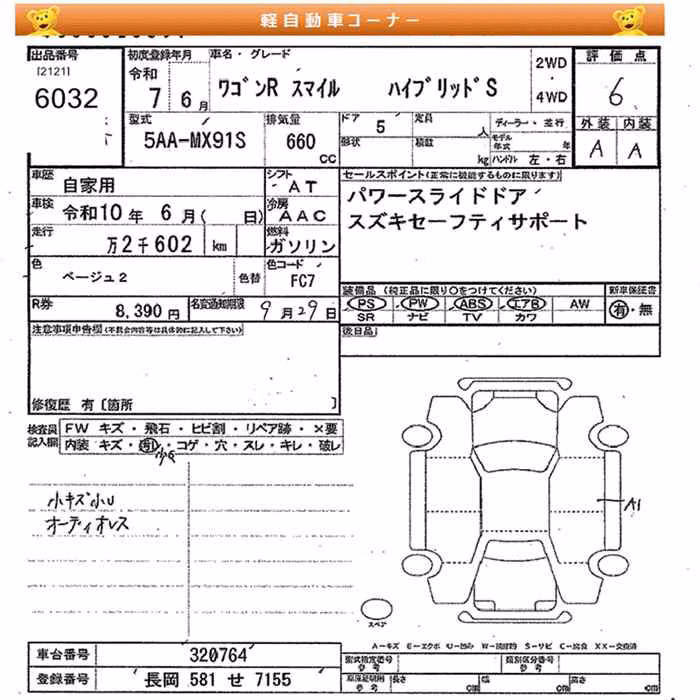 軽自動車コーナー
出品番号
[2121]
6032
初度登録年月
令和
7 6月
車名・グレード
ワゴンR スマイル ハイブリッドS
2WD
4WD
評価点
6
外装 内装
A A
型式
5AA-MX91S
排気量
660
cc
ドア 5
形状
定員 人
積載 kg
ディーラー・並行
モデル年式 年
ハンドル 左・右
車歴
自家用
シフト
AT
車検
令和10年 6月( 日)
冷房
AAC
走行
万2千602 km
燃料
ガソリン
色
ベージュ2
色替
色コード
FC7
R券
8,390円
名変通知期限
9月29日
セールスポイント(正常に機能するものに限ります)
パワースライドドア
スズキセーフティサポート
装備品(純正品に限り○をつけてください)
新車保証書
PS PW ABS エアB AW
SR ナビ TV カワ
有・無
後日品
注意事項申告欄(不具合内容等は具体的に記入して下さい)
修復歴 有〔箇所 〕
検査員記入欄
FW キズ・飛石・ヒビ割・リペア跡・×要
内装 キズ・汚れ・コゲ・穴・スレ・キレ・破レ
小キズ小U
オーディオレス
A1
スペア
A-キズ E-エクボ U-凹み W-補修跡 S-サビ C-腐食 XX-交換済
車台番号 320764
登録番号 長岡 581 せ 7155
型式指定番号 参考
類別区分番号 参考
長さ cm
幅 cm
高さ cm